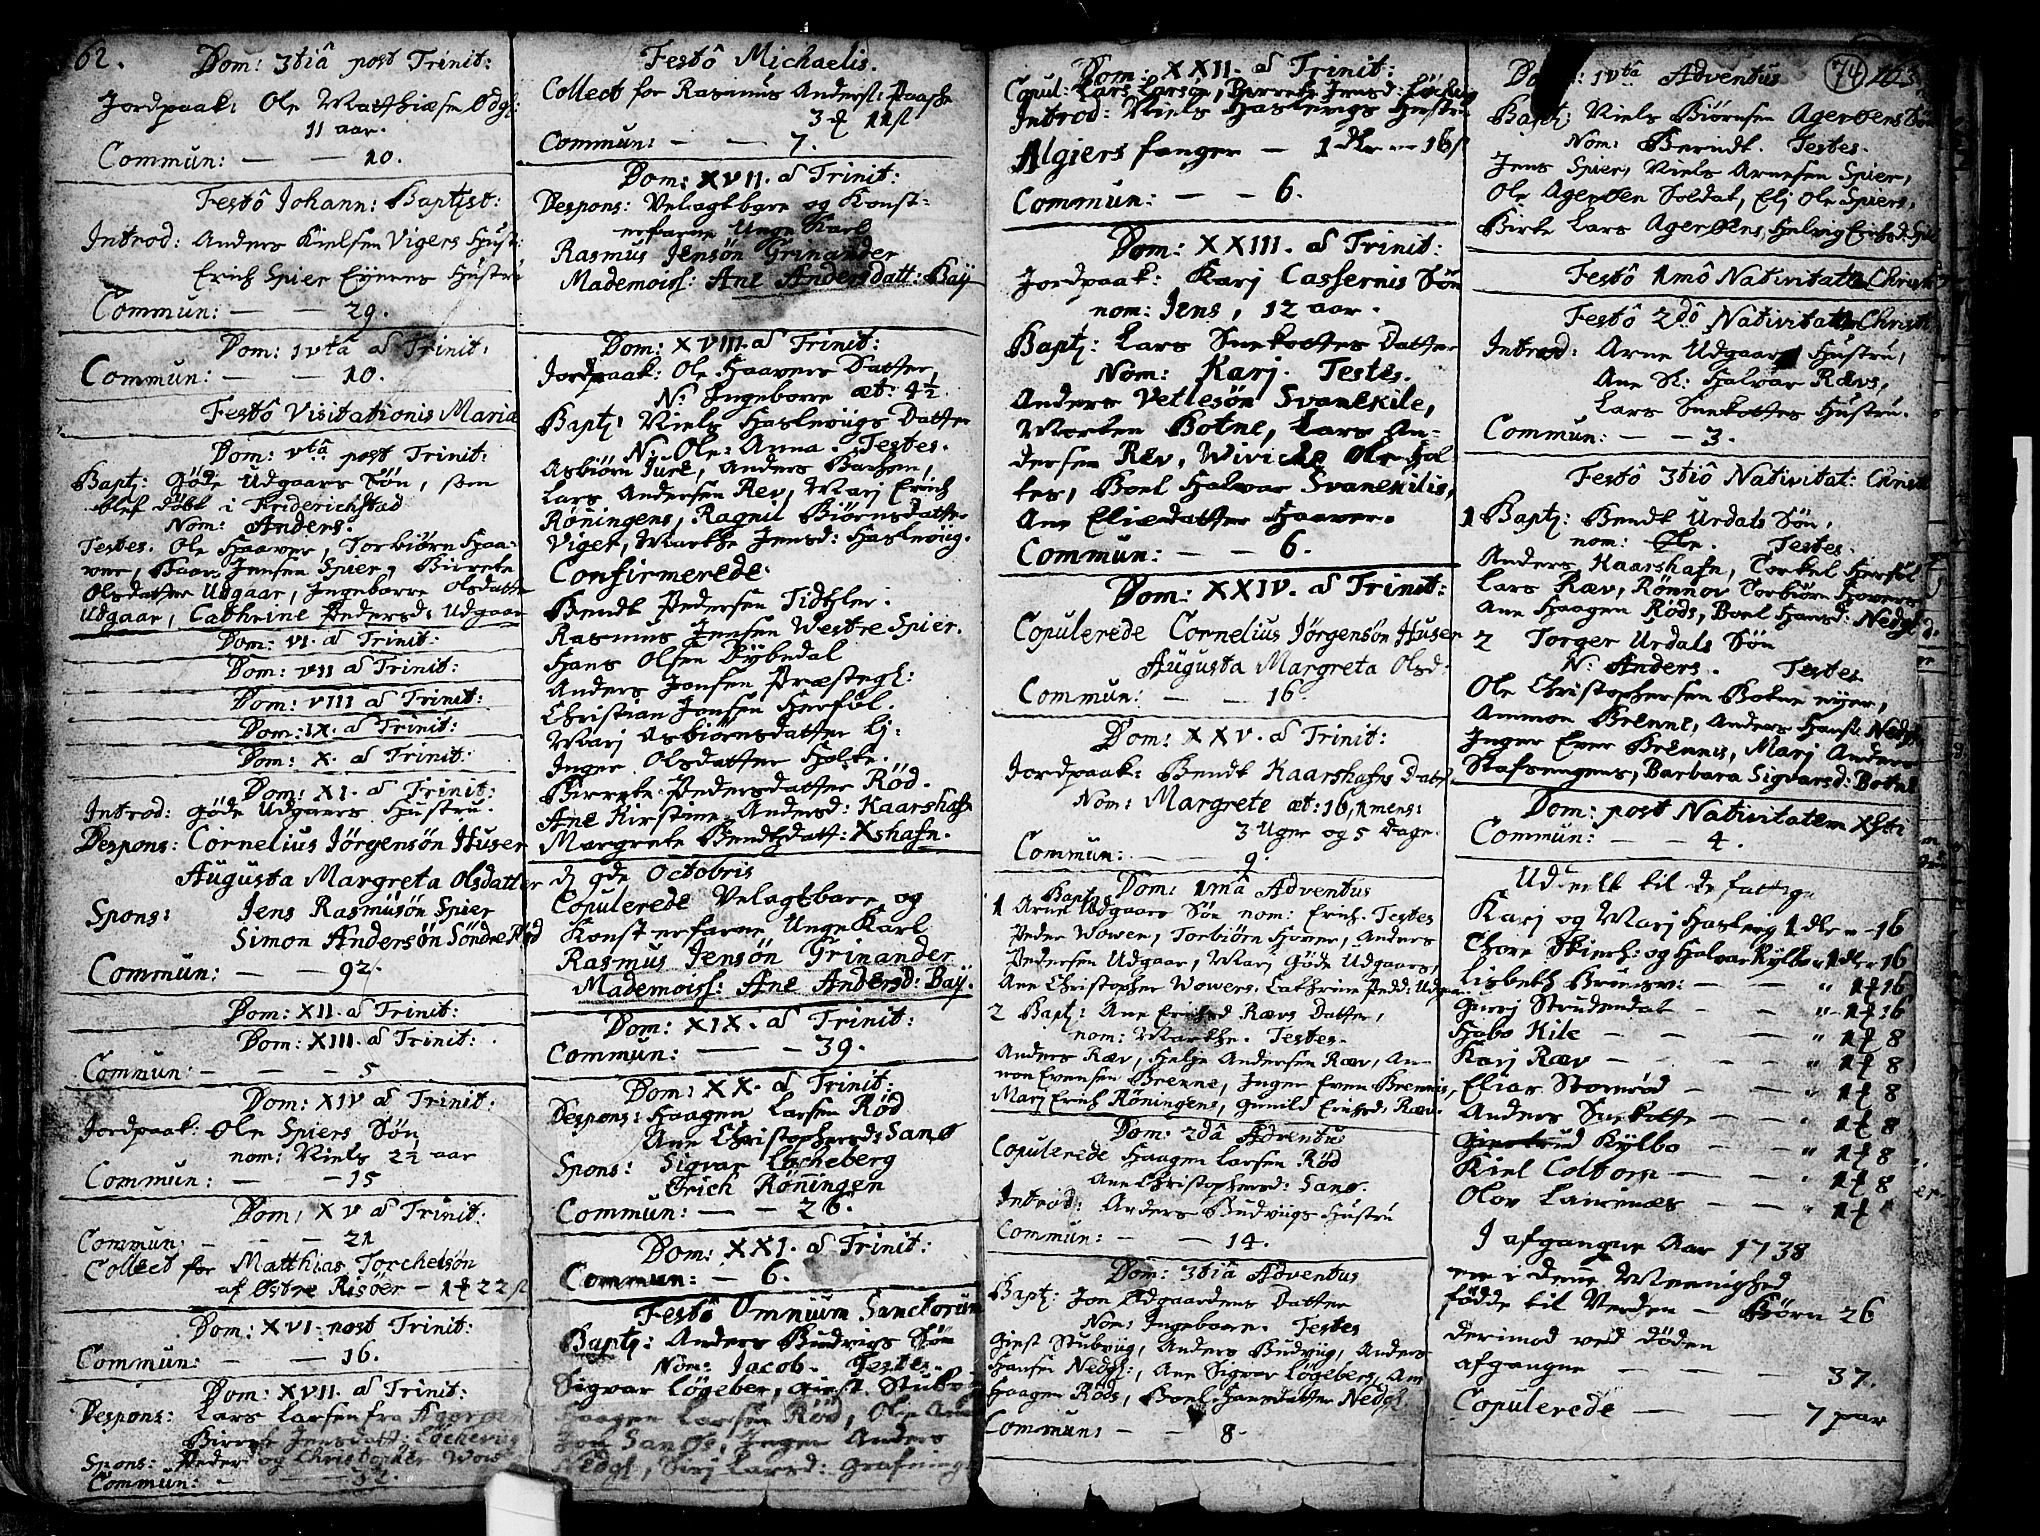 62.
Dom: 3tiâ post Trinit:
Jordpaak: Ole Matthiæsen Ødg:
11 aar.
Commun: — — 10.
Festô Johann: Baptist:
Introd: Anders Kielsen Vigers Hust:
Erich Spier Eyeres Hustru
Commun: — — 29.
Dom: ivtâ d Trinit:
Commun: — — 10.
Festô Visitationis Mariæ
Dom: vtâ post Trinit:
Bapt: Göde Udgaars Søn, som
blef döbt i Friderichstad
Nom: Anders.
Testes. Ole Haaver, Torbiörn Haa-
ver, Jensen Spier, Birrete
Olsdatter Udgaar, Ingeborre Olsdatter
Udgaar, Cathrine Pedersd: Udgaar
Dom: VI. d Trinit:
Dom: VII d Trinit:
Dom: VIII d Trinit:
Dom: IX. d Trinit:
Dom: X. d Trinit:
Dom: XI. d Trinit:
Introd: Göde Udgaars Hustru.
Despons: Cornelius Jörgensön Huser
Augusta Margreta Olsdatter
Spons: Jens Rasmusön Spier
Simon Andersön Söndre Röd
Commun: — — 92.
Dom: XII. d Trinit:
Dom: XIII. d Trinit:
Commun: — — — 5
Dom: XIV d Trinit:
Jordpaak: Ole Spiers Søn
nom: Niels 2½ aar
Commun: — — 15
Dom: XV d Trinit:
Commun: — — — 21
Collect for Matthias Torchelsön
af Østre Risöer — 1 22
Dom: XVI. post Trinit:
Commun: — — 16.
Dom: XVII. d Trinit:
Despons: Lars Larsen fra Ageröen
Birrete Jensdatt: Löchevig
Spons: Peder og Christopher Wow
Commun: — — 32.
Festô Michaelis.
Collect for Rasmus Anders: Paaske
3 11
Commun: — — 7.
Dom: XVII. d Trinit:
Despons: Velagtbare og Konst-
erfarne Unge Karl
Rasmus Jensön Grinander
Mademois: Ane Andersdatt: Baÿ
Dom: XVIII. d Trinit:
Jordpaak: Ole Haavers Datter,
N: Ingeborre æt: 4½.
Bapt: Niels Haslevigs Datter
N. Ole: Anna. Testes.
Asbiörn Ture, Anders Bachen,
Lars Andersen Rev, Marj Erich
Röningens, Ragnil Biörnsdatter
Viger, Marthe Jensd: Haslevig.
Confirmerede.
Bendt Pedersen Tidtler.
Rasmus Jensen Westre Spier.
Hans Olsen Dÿbedal
Anders Jonsen Præstegl:
Christian Jonsen Herföl.
Marj Asbiörnsdatter Ej:
Inger Olsdatter Holte.
Birrete Pedersdatter Röd.
Ane Kirstine Andersd: Kaarshafn
Margrete Bendtzdatt: Xshafn.
d 9de Octobris
Copulerede Velagtbare og
Konsterfarne Unge Karl
Rasmus Jensön Grinander
Mademois: Ane Andersd: Baÿ.
Dom: XIX. d Trinit:
Commun: — — 39.
Dom: XX. d Trinit:
Despons: Haagen Larsen Röd
Ane Christophersd: Sanø
Spons: Sigvar Löcheberg
Erich Röningen
Commun: — — 26.
Dom: XXI. d Trinit:
Commun: — 6.
Festô Omnium Sanctorum
Bapt: Anders Budvigs Søn
Nom: Jacob. Testes.
Sigvar Lögeber, Giest Stub
Haagen Larsen Röd, Ole
Jon Sanøs, Inger Anders
Nedgl, Sirj Larsd: Grafning
Dom: XXII. d Trinit:
Copul: Lars Larsen, Birrete Jensd: Löchvig
Introd: Niels Haslevigs Hustru
Algiers fanger — 1 dlr — 16
Commun: — — 6.
Dom: XXIII. d Trinit:
Jordpaak: Karj Cassernis Søn
nom: Jens, 12 aar.
Bapt: Lars Snekottes Datter
Nom: Karj. Testes.
Anders Vetlesön Svanekile,
Morten Botne, Lars An-
dersen Rev, Wiviche Ole Hol
tes, Boel Halvar Svanekilis,
Ane Eliædatter Haaver.
Commun: — — 6.
Dom: XXIV. d Trinit:
Copulerede Cornelius Jörgensön Huser
Augusta Margreta Olsd:
Commun: — — 16.
Dom: XXV. d Trinit:
Jordpaak: Bendt Kaarshafns Datter
Nom: Margrete æt: 16, 1 mens:
3 Uger og 5 Dage.
Commun: — — 9.
Dom: 1mâ Adventus
Bapt:
1 Arne Udgaars Søn nom: Erich. Testes
Peder Wower, Torbiörn Hower, Anders
Pedersen Udgaar, Marj Göde Udgaars,
Ane Christopher Wowers. Cathrine Pedd: Udgaa
2 Bapt: Ane Erichsd Rævs Datter,
nom: Marthe. Testes.
Anders Ræv, Helge Andersen Ræv, Am-
mon Evensen Brenne, Inger Even Brennis,
Marj Erich Röningens, Gunild Erichsd: Ræv.
Dom: 2dâ Adventus
Copulerede Haagen Larsen Röd
Ane Christophersd: Sanø.
Introd: Anders Budviigs Hustru
Commun: — — 14.
Dom: 3tiâ Adventus
Bapt: Jon Ødgaardens Datter
Nom: Ingeborre. Testes
Giest Stubviig, Anders Budviig, Anders
Hansen Nedgl:, Ane Sigvar Lögebergs, Am
Haagen Röds, Boel Hansdatter Nedgl
Commun: — — 8.
74 163
Dom: ivtâ Adventus
Bapt: Niels Biörnsen Ageröens Søn
Nom: Berndt. Testes.
Jens Spier, Niels Arnesen Spier,
Ole Ageröen Soldat, Elj Ole Spiers,
Birte Lars Ageröens, Helvig Erichsd:
Festô 1mô Nativitat: Christi
Festô 2dô Nativitat: Christi
Introd: Arne Udgaars Hustru,
Ane Sl: Halvår Rævs,
Lars Snekottes Hustru.
Commun: — — 3.
Festô 3tiô Nativitat: Christi
1 Bapt: Bendt Urdals Søn,
nom: Ole. Testes.
Anders Kaarshafn, Torkel Herföl
Lars Ræv, Rönnov Torbiörn Howers
Ane Haagen Röds, Boel Hansd: Nedgl
2 Torger Urdals Søn
N: Anders. Testes
Ole Christophersen Botne eyer,
Ammon Brenne, Anders Hans: Nedgl
Inger Even Brennis, Marj Anders
Stafsengens, Barbara Sigvarsd: Botne
Dom: post Nativitatem Xsti
Commun: — — 4.
Uddeelt til de fattige
Karj og Marj Haslevig 1 dlr — 16
Thore Skierh: og Halvar Kÿlbo 1 dlr 16
Lisbeth Brunsv: — — " 1 16
Gurj Strudendal — — " 1 16
Habo Kile — — — " 1 8
Karj Ræv — — — " 1 8
Elias Stomröd — — " 1 8
Anders Snekotte — — " 1 8
Giertrud Kÿlbo — — " 1 8
Kiel Colborn — — " 1 8
Olov Lauernæs — — " 1
I afgangne Aar 1738
ere i denne Meenighed
födde til Verden — Børn 26
derimod ved döden
afgangne — — — 37.
Copulerede — — 7 par